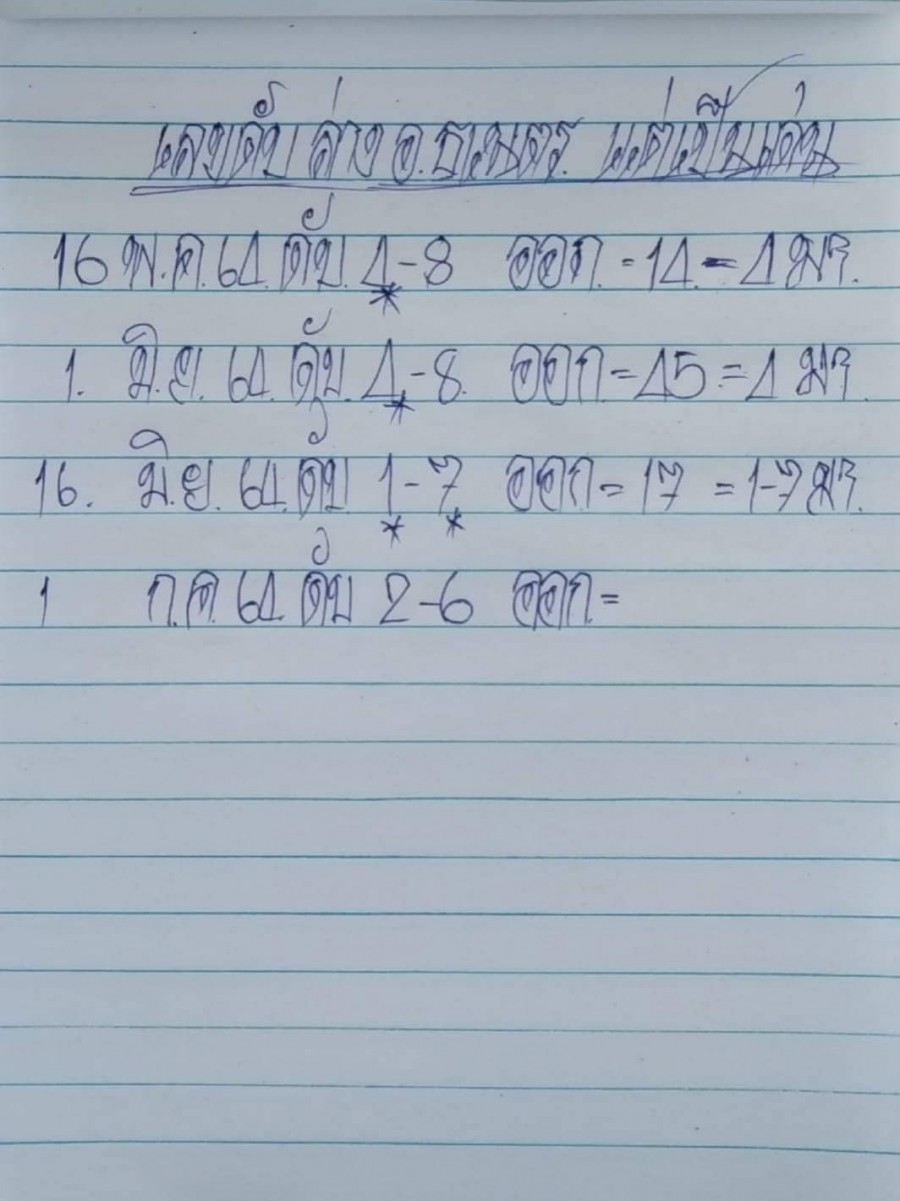 เลขดับ ล่าง อ.ธเนตร. แต่เป็นเด่น
16 พ.ค. 64. ดับ. 4-8 ออก. - 14. - 4 มา.
1. มิ.ย. 64 ดับ. 4-8. ออก = 45 = 4 มา.
16. มิ.ย. 64. ดับ 1-7 ออก = 17 = 1-7 มา.
1 ก.ค. 64 ดับ 2-6 ออก. =